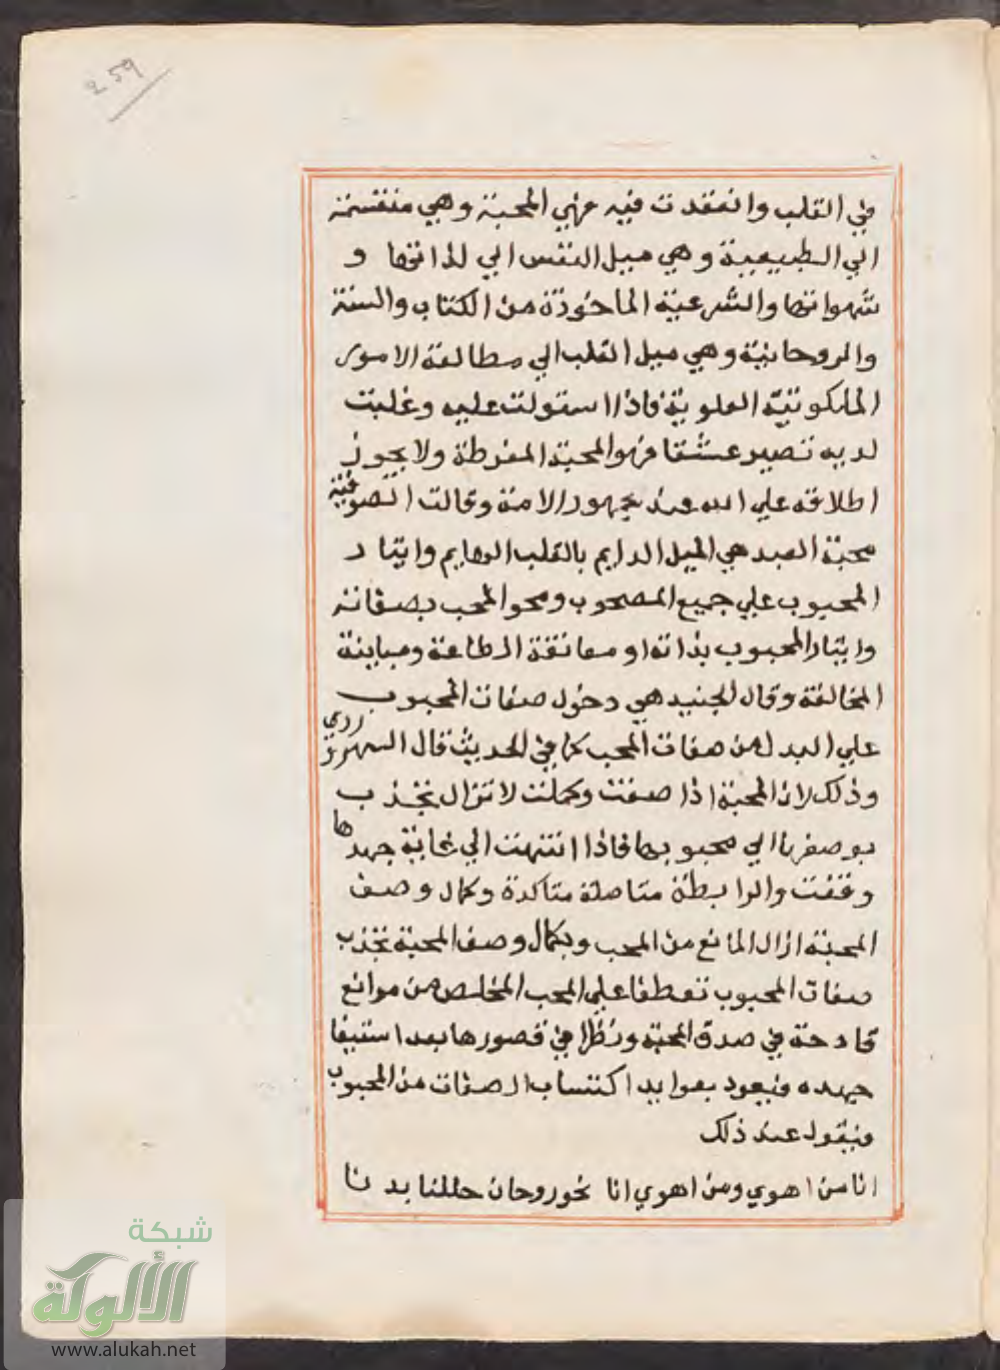 259
في القلب وانعقدت فيه فهي المحبة وهي منقسمة
الي الطبيعية وهي ميل النفس الي لذاتها و
شهواتها والشرعية الماخوذة من الكتاب والسنة
والروحانية وهي ميل القلب الي مطالعة الامور
الملكوتية العلوية فاذا استولت عليه وغلبت
لديه تصير عشقا فهو المحبة المفرطة ولا يجوز
اطلاقه علي الله عند جمهور الامة وقالت الصوفية
محبة العبد هي الميل الدايم بالقلب الهايم وايثار
المحبوب علي جميع المصحوب ومحو المحب بصفاته
وايثار المحبوب بذاته او معانقة الطاعة ومباينة
المخالفة وقال الجنيد هي دخول صفات المحبوب
علي البدل من صفات المحب كما في الحديث قال السهروردي
وذلك لان المحبة اذا صفت وكملت لا تزال تجذب
بوصفها الي محبوبها فاذا انتهت الي غاية جهدها
وقفت والرابطة متاصلة متاكدة وكمال وصف
المحبة ازال المانع من المحب وبكمال وصف المحبة تجذب
صفات المحبوب تعطفا علي المحب المخلص من موانع
قادحة في صدق المحبة ونظرا في قصورها بعد استنيفا
جهده فيعود بفوايد اكتساب الصفات من المحبوب
فيقول عند ذلك
انا من اهوي ومن اهوي انا نحو روحان حللنا بدنا
شبكة
الألوكة
www.alukah.net